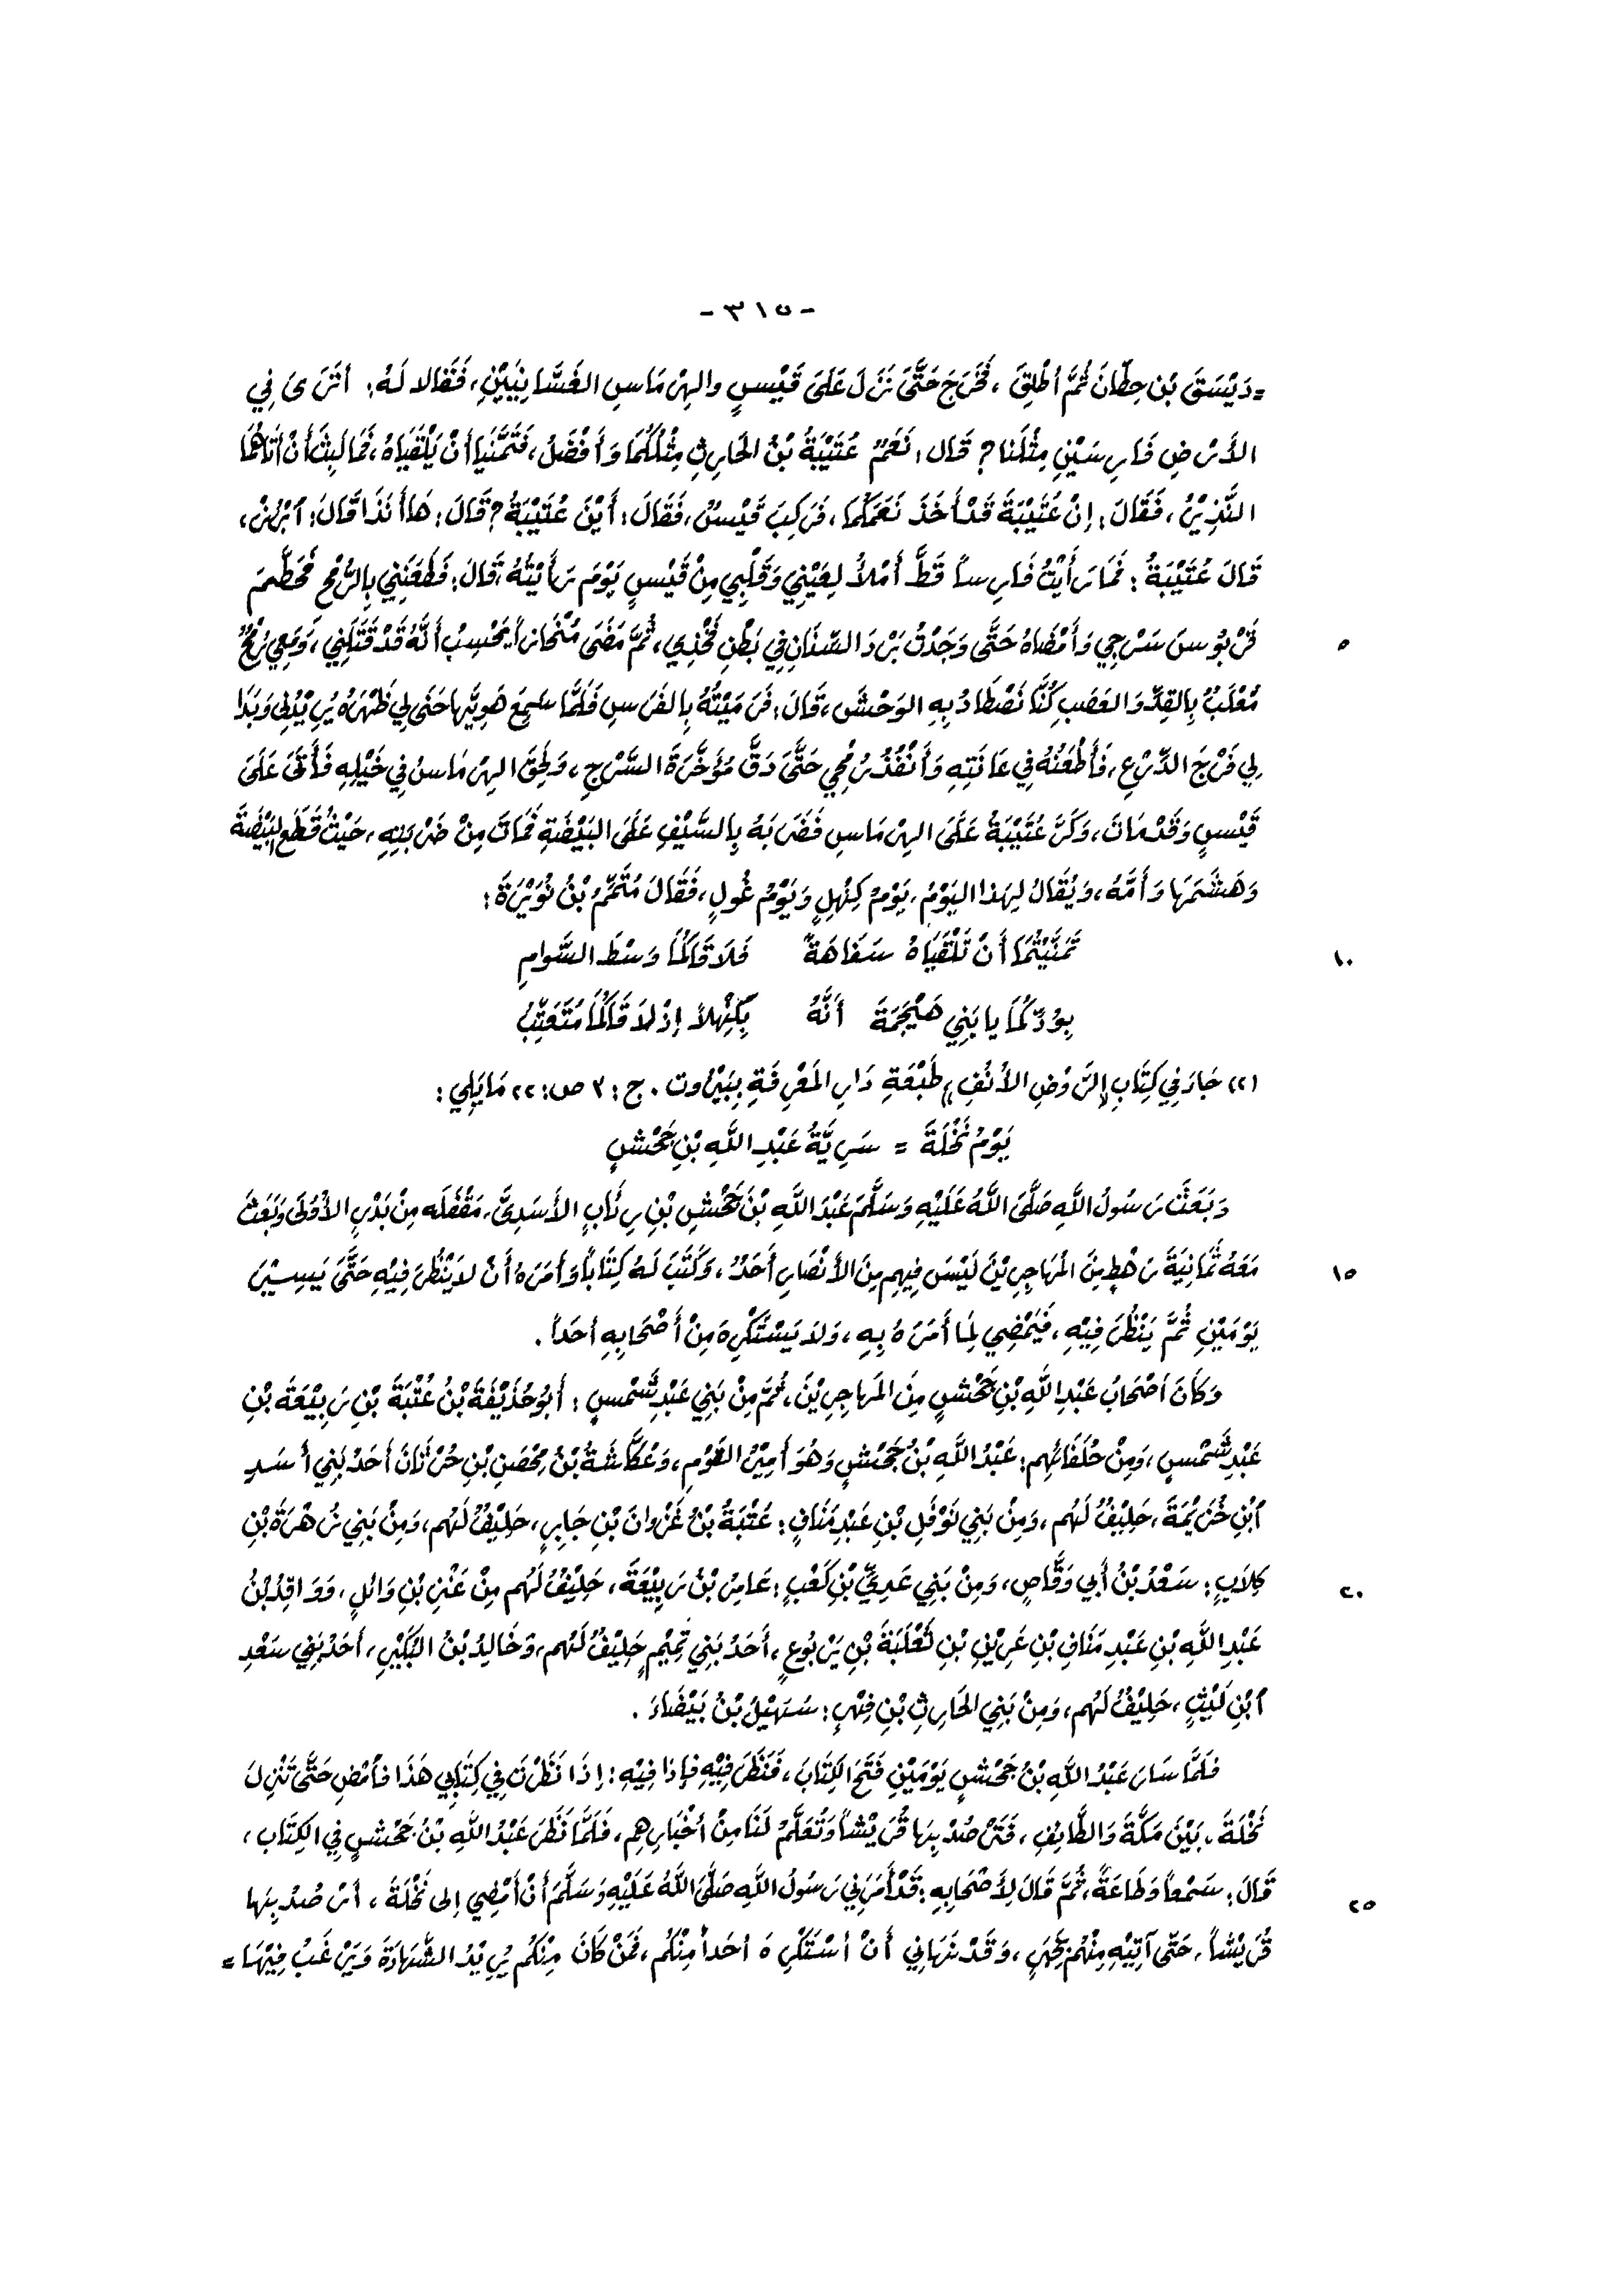 - ٣١٥ -
= دَيْسَقَ بْنِ حِطَّانَ ثُمَّ أُطْلِقَ ، فَخَرَجَ حَتَّى نَزَلَ عَلَى قَيْسٍ والهِرْمَاسِ الغَسَّانِيَيْنِ ، فَقَالا لَهُ : أَتَرَى فِي
الأَرْضِ فَارِسَيْنِ مِثْلَنا ؟ قَالَ : نَعَمْ عُتَيْبَةُ بْنُ الحَارِثِ مِثْلُكُمَا وَأَفْضَلُ ، فَتَمَنَّيَا أَنْ يَلْقَيَاهُ ، فَمَا لَبِثَ أَنْ أَتَاهُمَا
النَّذِيْرُ ، فَقَالَ : إِنَّ عُتَيْبَةَ قَدْ أَخَذَ نَعَمَكُمَا ، فَرَكِبَ قَيْسٌ ، فَقَالَ : أَيْنَ عُتَيْبَةُ ؟ قَالَ : هَا أَنَذَا قَالَ : اَبْرُزْ ،
قَالَ عُتَيْبَةُ : فَمَا رَأَيْتُ فَارِساً قَطُّ أَمْلأَ لِعَيْنِي وَقَلْبِي مِنْ قَيْسٍ يَوْمَ رَأَيْتُهُ ، قَالَ : فَطَعَنَنِي بِالرُّمْحِ فَحَطَّمَ
٥ قَرْبُوسَ سَرْجِي وَأَمْضَاهُ حَتَّى وَجَدْتُ بَرْدَ السِّنَانِ فِي بَطْنِ فَخْذِي ، ثُمَّ مَضَى مُنْحَازاً يَحْسِبُ أَنَّهُ قَدْ قَتَلَنِي ، وَمَعِي رُمْحٌ
مُعْلَبٌ بِالقِدِّ وَالعَصَبِ كُنَّا نَصْطَادُ بِهِ الوَحْشَ ، قَالَ : فَرَمَيْتُهُ بِالفَرَسِ فَلَمَّا سَمِعَ هَوِيَّها حَنَى لِي ظَهْرَهُ وَبَدَا
لِي فَرْجُ الدِّرْعِ ، فَأَطْعَنُهُ فِي عَانَتِهِ وَأَنْفُذُ رُمْحِي حَتَّى دَقَّ مُؤَخَّرَةَ السَّرْجِ ، وَلَحِقَ الهِرْمَاسُ فِي خَيْلِهِ فَأَتَى عَلَى
قَيْسٍ وَقَدْ مَاتَ ، وَكَرَّ عُتَيْبَةُ عَلَى الهِرْمَاسِ فَضَرَبَهُ بِالسَّيْفِ عَلَى البَيْضَةِ فَمَاتَ مِنْ ضَرْبَتِهِ ، حَيْثُ قَطَعَ البَيْضَةَ
وَهَشَمَهَا وَأَمَّهُ ، وَيُقَالُ لِهَذا اليَوْمُ ، يَوْمُ كِنْهِلٍ وَيَوْمُ غُولٍ ، فَقَالَ مُتَمِّمُ بْنُ نُوَيْرَةَ :
١٠ تَمَنَّيْتُمَا أَنْ تَلْقَيَاهُ سَفَاهَةً فَلاَقَاكُمَا وَسْطَ السَّوَامِ
بِوُدِّكُمَا يا بَنِي هُجَيْمَةَ أَنَّهُ بِكِنْهِلاَ إِذْ لاَقَاكُمَا مُتَعَتِّبُ
(٢) جَاءَ فِي كِتَابِ (( الرَّوْضِ الأُنُفِ )) طَبْعَةِ دَارِ المَعْرِفَةِ بِبَيْرُوت . ج : ٣ ص : ٢٢ مَا يَلِي :
يَوْمُ نَخْلَةَ = سَرِيَّةُ عَبْدِ اللَّهِ بْنِ جَحْشٍ
وَبَعَثَ رَسُولُ اللَّهِ صَلَّى اللَّهُ عَلَيْهِ وَسَلَّمَ عَبْدَ اللَّهِ بْنَ جَحْشِ بْنِ رِئَابٍ الأَسَدِيَّ ، مَقْفَلَه مِنْ بَدْرٍ الأُوْلَى وَبَعَثَ
١٥ مَعَهُ ثَمَانِيَةَ رَهْطٍ مِنَ المُهَاجِرِيْنَ لَيْسَ فِيهِم مِنَ الأَنْصَارِ أَحَدٌ ، وَكَتَبَ لَهُ كِتَاباً وَأَمَرَهُ أَنْ لاَ يَنْظُرَ فِيْهِ حَتَّى يَسِيْرَ
يَوْمَيْنِ ثُمَّ يَنْظُرَ فِيْهِ ، فَيَمْضِي لِمَا أَمَرَهُ بِهِ ، وَلاَ يَسْتَكْرِهَ مِنْ أَصْحَابِهِ أَحَداً .
وَكَانَ أَصْحَابُ عَبْدِ اللَّهِ بْنِ جَحْشٍ مِنَ المُهَاجِرِيْنَ ، ثُمَّ مِنْ بَنِي عَبْدِ شَمْسٍ : أَبُو حُذَيْفَةَ بْنُ عُتْبَةَ بْنِ رَبِيْعَةَ بْنِ
عَبْدِ شَمْسٍ ، وَمِنْ حُلَفَائِهِم : عَبْدُ اللَّهِ بْنُ جَحْشٍ وَهُوَ أَمِيْرُ القَوْمِ ، وَعُكَّاشَةُ بْنُ مِحْصَنِ بْنِ حُرْثَانَ أَحَدُ بَنِي أَسَدِ
اَبْنِ خُزَيْمَةَ ، حَلِيْفٌ لَهُم ، وَمِنْ بَنِي نَوْفَلِ بْنِ عَبْدِ مَنَافٍ : عُتْبَةُ بْنُ غَزْوَانَ بْنِ جَابِرٍ ، حَلِيْفٌ لَهُم ، وَمِنْ بَنِي زُهْرَةَ بْنِ
٢٠ كِلاَبٍ : سَعْدُ بْنُ أَبِي وَقَّاصٍ ، وَمِنْ بَنِي عَدِيِّ بْنِ كَعْبٍ : عَامِرُ بْنُ رَبِيْعَةَ ، حَلِيْفٌ لَهُم مِنْ عَنْزِ بْنِ وَائِلٍ ، وَوَاقِدُ بْنُ
عَبْدِ اللَّهِ بْنِ عَبْدِ مَنَافِ بْنِ عَرِيْنِ بْنِ ثَعْلَبَةَ بْنِ يَرْبُوعٍ ، أَحَدُ بَنِي تَمِيْمٍ حَلِيْفٌ لَهُم ، وَخَالِدُ بْنُ البُكَيْرِ ، أَحَدُ بَنِي سَعْدِ
اَبْنِ لَيْثٍ ، حَلِيْفٌ لَهُم ، وَمِنْ بَنِي الحَارِثِ بْنِ فِهْرٍ : سُهَيْلُ بْنُ بَيْضَاءَ .
فَلَمَّا سَارَ عَبْدُ اللَّهِ بْنُ جَحْشٍ يَوْمَيْنِ فَتَحَ الكِتَابَ ، فَنَظَرَ فِيْهِ فَإِذَا فِيْهِ : إِذَا نَظَرْتَ فِي كِتَابِي هَذَا فَاَمْضِ حَتَّى تَنْزِلَ
نَخْلَةَ ، بَيْنَ مَكَّةَ وَالطَّائِفِ ، فَتَرْصُدْ بِهَا قُرَيْشاً وَتَعْلَمْ لَنَا مِنْ أَخْبَارِهِم ، فَلَمَّا نَظَرَ عَبْدُ اللَّهِ بْنُ جَحْشٍ فِي الكِتَابِ ،
٢٥ قَالَ : سَمْعاً وَطَاعَةً ، ثُمَّ قَالَ لأَصْحَابِهِ : قَدْ أَمَرَنِي رَسُولُ اللَّهِ صَلَّى اللَّهُ عَلَيْهِ وَسَلَّمَ أَنْ أَمْضِي إِلى نَخْلَةَ ، أَرْصُدْ بِهَا
قُرَيْشاً ، حَتَّى آتِيَهِ مِنْهُم بِخَبَرٍ ، وَقَدْ نَهَانِي أَنْ أَسْتَكْرِهَ أَحَداً مِنْكُم ، فَمَنْ كَانَ مِنْكُم يُرِيْدُ الشَّهَادَةَ وَيَرْغَبُ فِيْهَا =